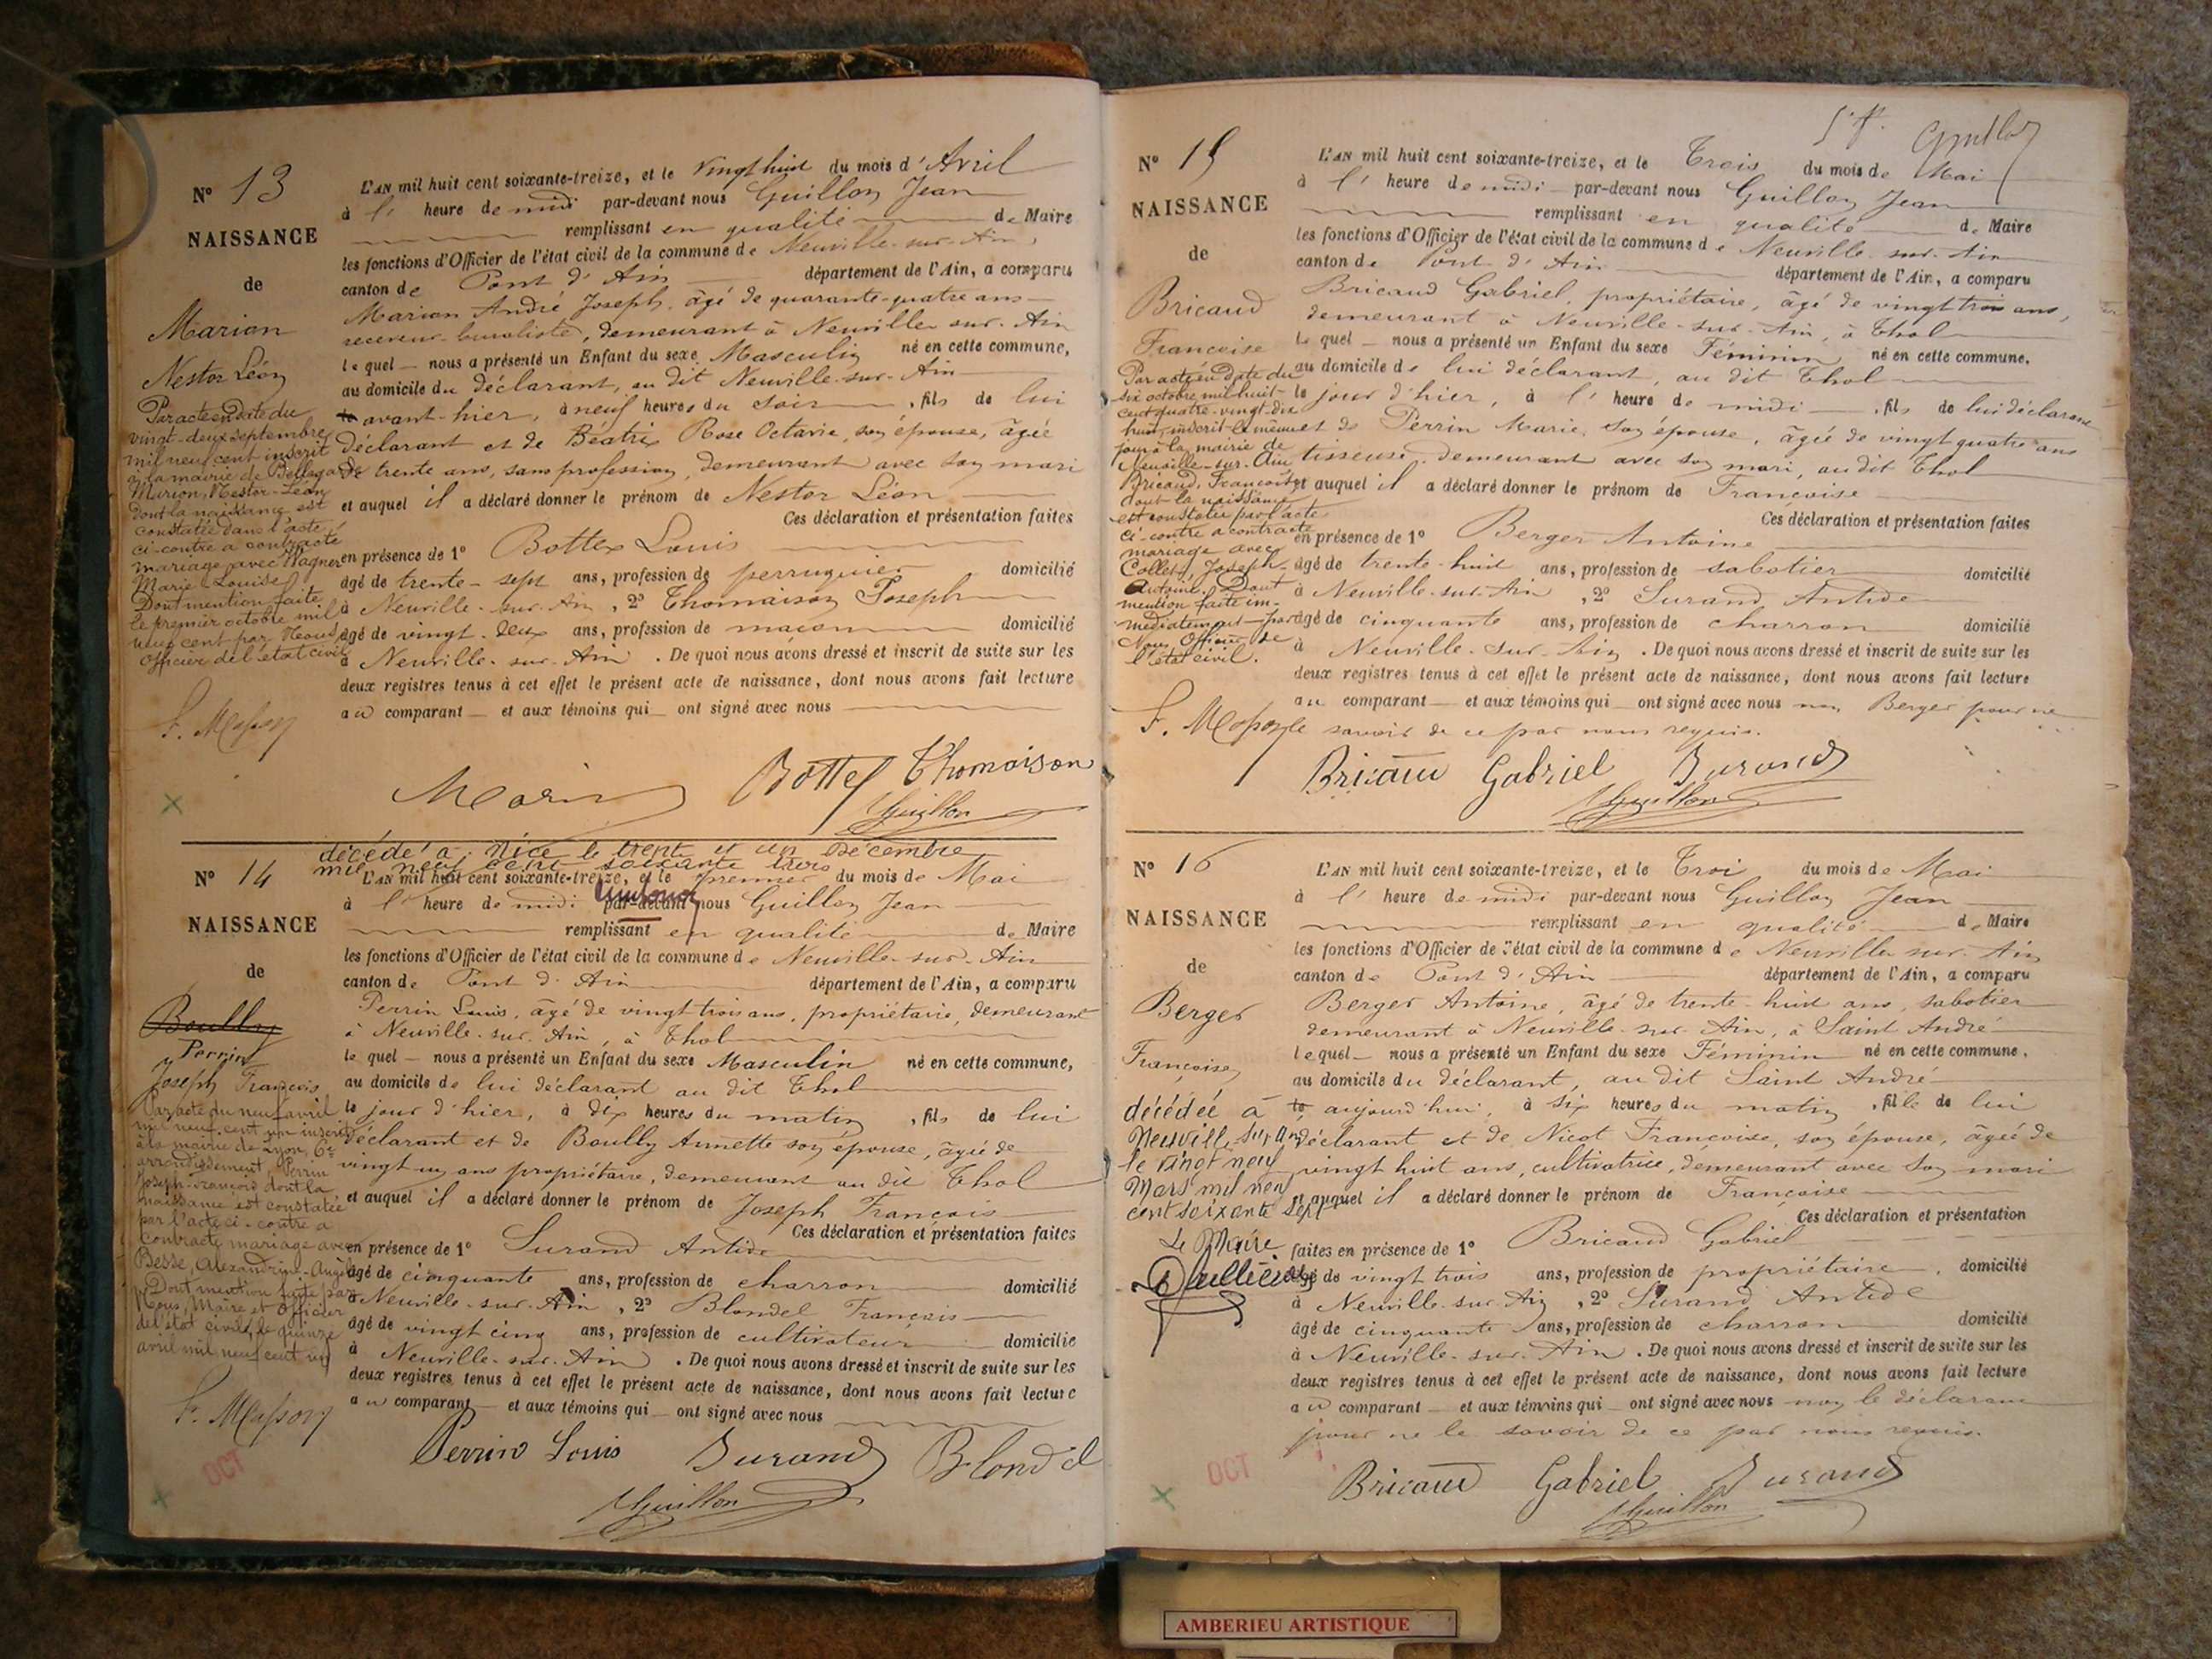 N° 13
NAISSANCE
de
Marion
Nestor Léon
Par acte en date du
vingt-deux septembre
mil neuf cent inscrit
à la mairie de Bellegarde
Marion, Nestor-Léon
dont la naissance est
constatée dans l'acte
ci-contre a contracté
mariage avec Wagner
Marie-Louise
Dont mention faite
le premier octobre mil
neuf cent par Nous
officier de l'état civil
F. Masson
L'AN mil huit cent soixante-treize, et le vingt huit du mois d'Avril
à l' heure de midi par-devant nous Guillon Jean
remplissant en qualité de Maire
les fonctions d'Officier de l'état civil de la commune de Neuville-sur-Ain,
canton de Pont d'Ain département de l'Ain, a comparu
Marion André Joseph, âgé de quarante-quatre ans
receveur-buraliste, demeurant à Neuville-sur-Ain
lequel nous a présenté un Enfant du sexe Masculin né en cette commune,
au domicile du déclarant, au dit Neuville-sur-Ain
le avant-hier, à neuf heures du soir, fils de lui
déclarant et de Béatrix Rose Octavie, son épouse, âgée
de trente ans, sans profession, demeurant avec son mari
et auquel il a déclaré donner le prénom de Nestor Léon
Ces déclaration et présentation faites
en présence de 1° Bottex Louis
âgé de trente-sept ans, profession de perruquier domicilié
à Neuville-sur-Ain, 2° Thomaison Joseph
âgé de vingt-deux ans, profession de maçon domicilié
à Neuville-sur-Ain. De quoi nous avons dressé et inscrit de suite sur les
deux registres tenus à cet effet le présent acte de naissance, dont nous avons fait lecture
au comparant et aux témoins qui ont signé avec nous
Marion Bottex Thomaison
Guillon
décédé à Nice le trente et un Décembre
mil neuf cent soixante trois
N° 14
NAISSANCE
de
Boully
Perrin
Joseph François
Par acte du neuf avril
mil neuf cent un inscrit
à la mairie de Lyon, 6e
arrondissement, Perrin
Joseph-François dont la
naissance est constatée
par l'acte ci-contre a
contracté mariage avec
Besse, Alexandrine-Angèle
Dont mention faite par
Nous, Maire et Officier
de l'état civil, le quinze
avril mil neuf cent un
F. Masson
OCT
L'AN mil huit cent soixante-treize, et le premier du mois de Mai
à l' heure de midi par-devant nous Guillon Jean
remplissant en qualité de Maire
les fonctions d'Officier de l'état civil de la commune de Neuville-sur-Ain
canton de Pont d'Ain département de l'Ain, a comparu
Perrin Louis, âgé de vingt trois ans, propriétaire, demeurant
à Neuville-sur-Ain, à Thol
lequel nous a présenté un Enfant du sexe Masculin né en cette commune,
au domicile de lui déclarant au dit Thol
le jour d'hier, à dix heures du matin, fils de lui
déclarant et de Boully Annette son épouse, âgée de
vingt un ans propriétaire, demeurant au dit Thol
et auquel il a déclaré donner le prénom de Joseph François
Ces déclaration et présentation faites
en présence de 1° Durand Antide
âgé de cinquante ans, profession de charron domicilié
à Neuville-sur-Ain, 2° Blondel François
âgé de vingt cinq ans, profession de cultivateur domicilié
à Neuville-sur-Ain. De quoi nous avons dressé et inscrit de suite sur les
deux registres tenus à cet effet le présent acte de naissance, dont nous avons fait lecture
au comparant et aux témoins qui ont signé avec nous
Perrin Louis Durand Blondel
Guillon
Guillon
N° 15
NAISSANCE
de
Bricaud
Françoise
Par acte en date du
six octobre mil huit
cent quatre-vingt-dix
huit, inscrit le même
jour à la mairie de
Neuville-sur-Ain
Bricaud, Françoise
dont la naissance
est constatée par l'acte
ci-contre a contracté
mariage avec
Collet, Joseph-
Antoine. Dont
mention faite im-
médiatement par
Nous, Officier de
l'état civil.
F. Masson
L'AN mil huit cent soixante-treize, et le Trois du mois de Mai
à l' heure de midi par-devant nous Guillon Jean
remplissant en qualité de Maire
les fonctions d'Officier de l'état civil de la commune de Neuville-sur-Ain
canton de Pont d'Ain département de l'Ain, a comparu
Bricaud Gabriel, propriétaire, âgé de vingt trois ans,
demeurant à Neuville-sur-Ain, à Thol
lequel nous a présenté un Enfant du sexe Féminin né en cette commune.
au domicile de lui déclarant, au dit Thol
le jour d'hier, à l' heure de midi, fils de lui déclarant
et de Perrin Marie, son épouse, âgée de vingt quatre ans
tisseuse, demeurant avec son mari, au dit Thol
et auquel il a déclaré donner le prénom de Françoise
Ces déclaration et présentation faites
en présence de 1° Berger Antoine
âgé de trente-huit ans, profession de sabotier domicilié
à Neuville-sur-Ain, 2° Durand Antide
âgé de cinquante ans, profession de charron domicilié
à Neuville-sur-Ain. De quoi nous avons dressé et inscrit de suite sur les
deux registres tenus à cet effet le présent acte de naissance, dont nous avons fait lecture
au comparant et aux témoins qui ont signé avec nous non Berger pour ne
le savoir de ce par nous requis.
Bricaud Gabriel Durand
Guillon
N° 16
NAISSANCE
de
Berger
Françoise
décédée à
Neuville-sur-Ain
le vingt neuf
Mars mil neuf
cent soixante sept
Le Maire
L'AN mil huit cent soixante-treize, et le Troi du mois de Mai
à l' heure de midi par-devant nous Guillon Jean
remplissant en qualité de Maire
les fonctions d'Officier de l'état civil de la commune de Neuville-sur-Ain
canton de Pont d'Ain département de l'Ain, a comparu
Berger Antoine, âgé de trente-huit ans, sabotier
demeurant à Neuville-sur-Ain, à Saint André
lequel nous a présenté un Enfant du sexe Féminin né en cette commune.
au domicile du déclarant, au dit Saint André
le aujourd'hui, à six heures du matin, fille de lui
déclarant et de Nicot Françoise, son épouse, âgée de
vingt huit ans, cultivatrice, demeurant avec son mari
et auquel il a déclaré donner le prénom de Françoise
Ces déclaration et présentation
faites en présence de 1° Bricaud Gabriel
âgé de vingt trois ans, profession de propriétaire, domicilié
à Neuville-sur-Ain, 2° Durand Antide
âgé de cinquante ans, profession de charron domicilié
à Neuville-sur-Ain. De quoi nous avons dressé et inscrit de suite sur les
deux registres tenus à cet effet le présent acte de naissance, dont nous avons fait lecture
au comparant et aux témoins qui ont signé avec nous non le déclarant
pour ne le savoir de ce par nous requis.
OCT
Bricaud Gabriel Durand
Guillon
AMBERIEU ARTISTIQUE